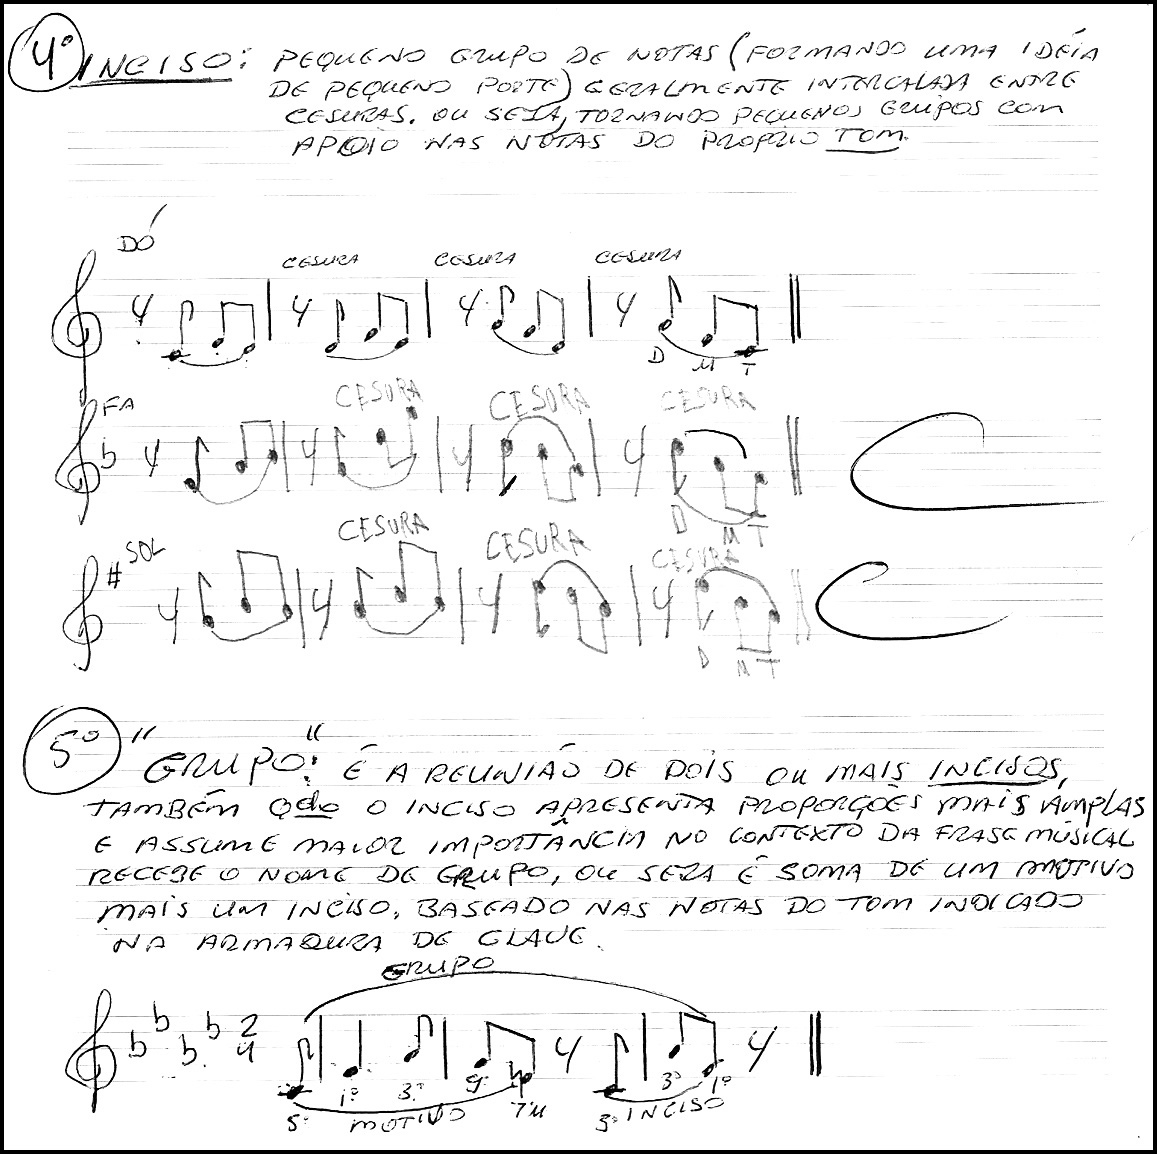 4º INCISO: PEQUENO GRUPO DE NOTAS (FORMANDO UMA IDÉIA
DE PEQUENO PORTE) GERALMENTE INTERCALADA ENTRE
CESURAS. OU SEJA, TORNANDO PEQUENOS GRUPOS COM
APOIO NAS NOTAS DO PROPRIO TOM.
DÓ
CESURA CESURA CESURA
D M T
FA
CESURA CESURA CESURA
D M T
SOL
CESURA CESURA CESURA
D M T
5º "GRUPO": É A REUNIÃO DE DOIS OU MAIS INCISOS,
TAMBÉM Qdo O INCISO APRESENTA PROPORÇÕES MAIS AMPLAS
E ASSUME MAIOR IMPORTÂNCIA NO CONTEXTO DA FRASE MÚSICAL
RECEBE O NOME DE GRUPO, OU SEZA É SOMA DE UM MOTIVO
MAIS UM INCISO, BASEADO NAS NOTAS DO TOM INDICADO
NA ARMADURA DE CLAVE.
GRUPO
2
4
5º 1º 3º 9º 7ªM 3º 3º 1º
MOTIVO INCISO